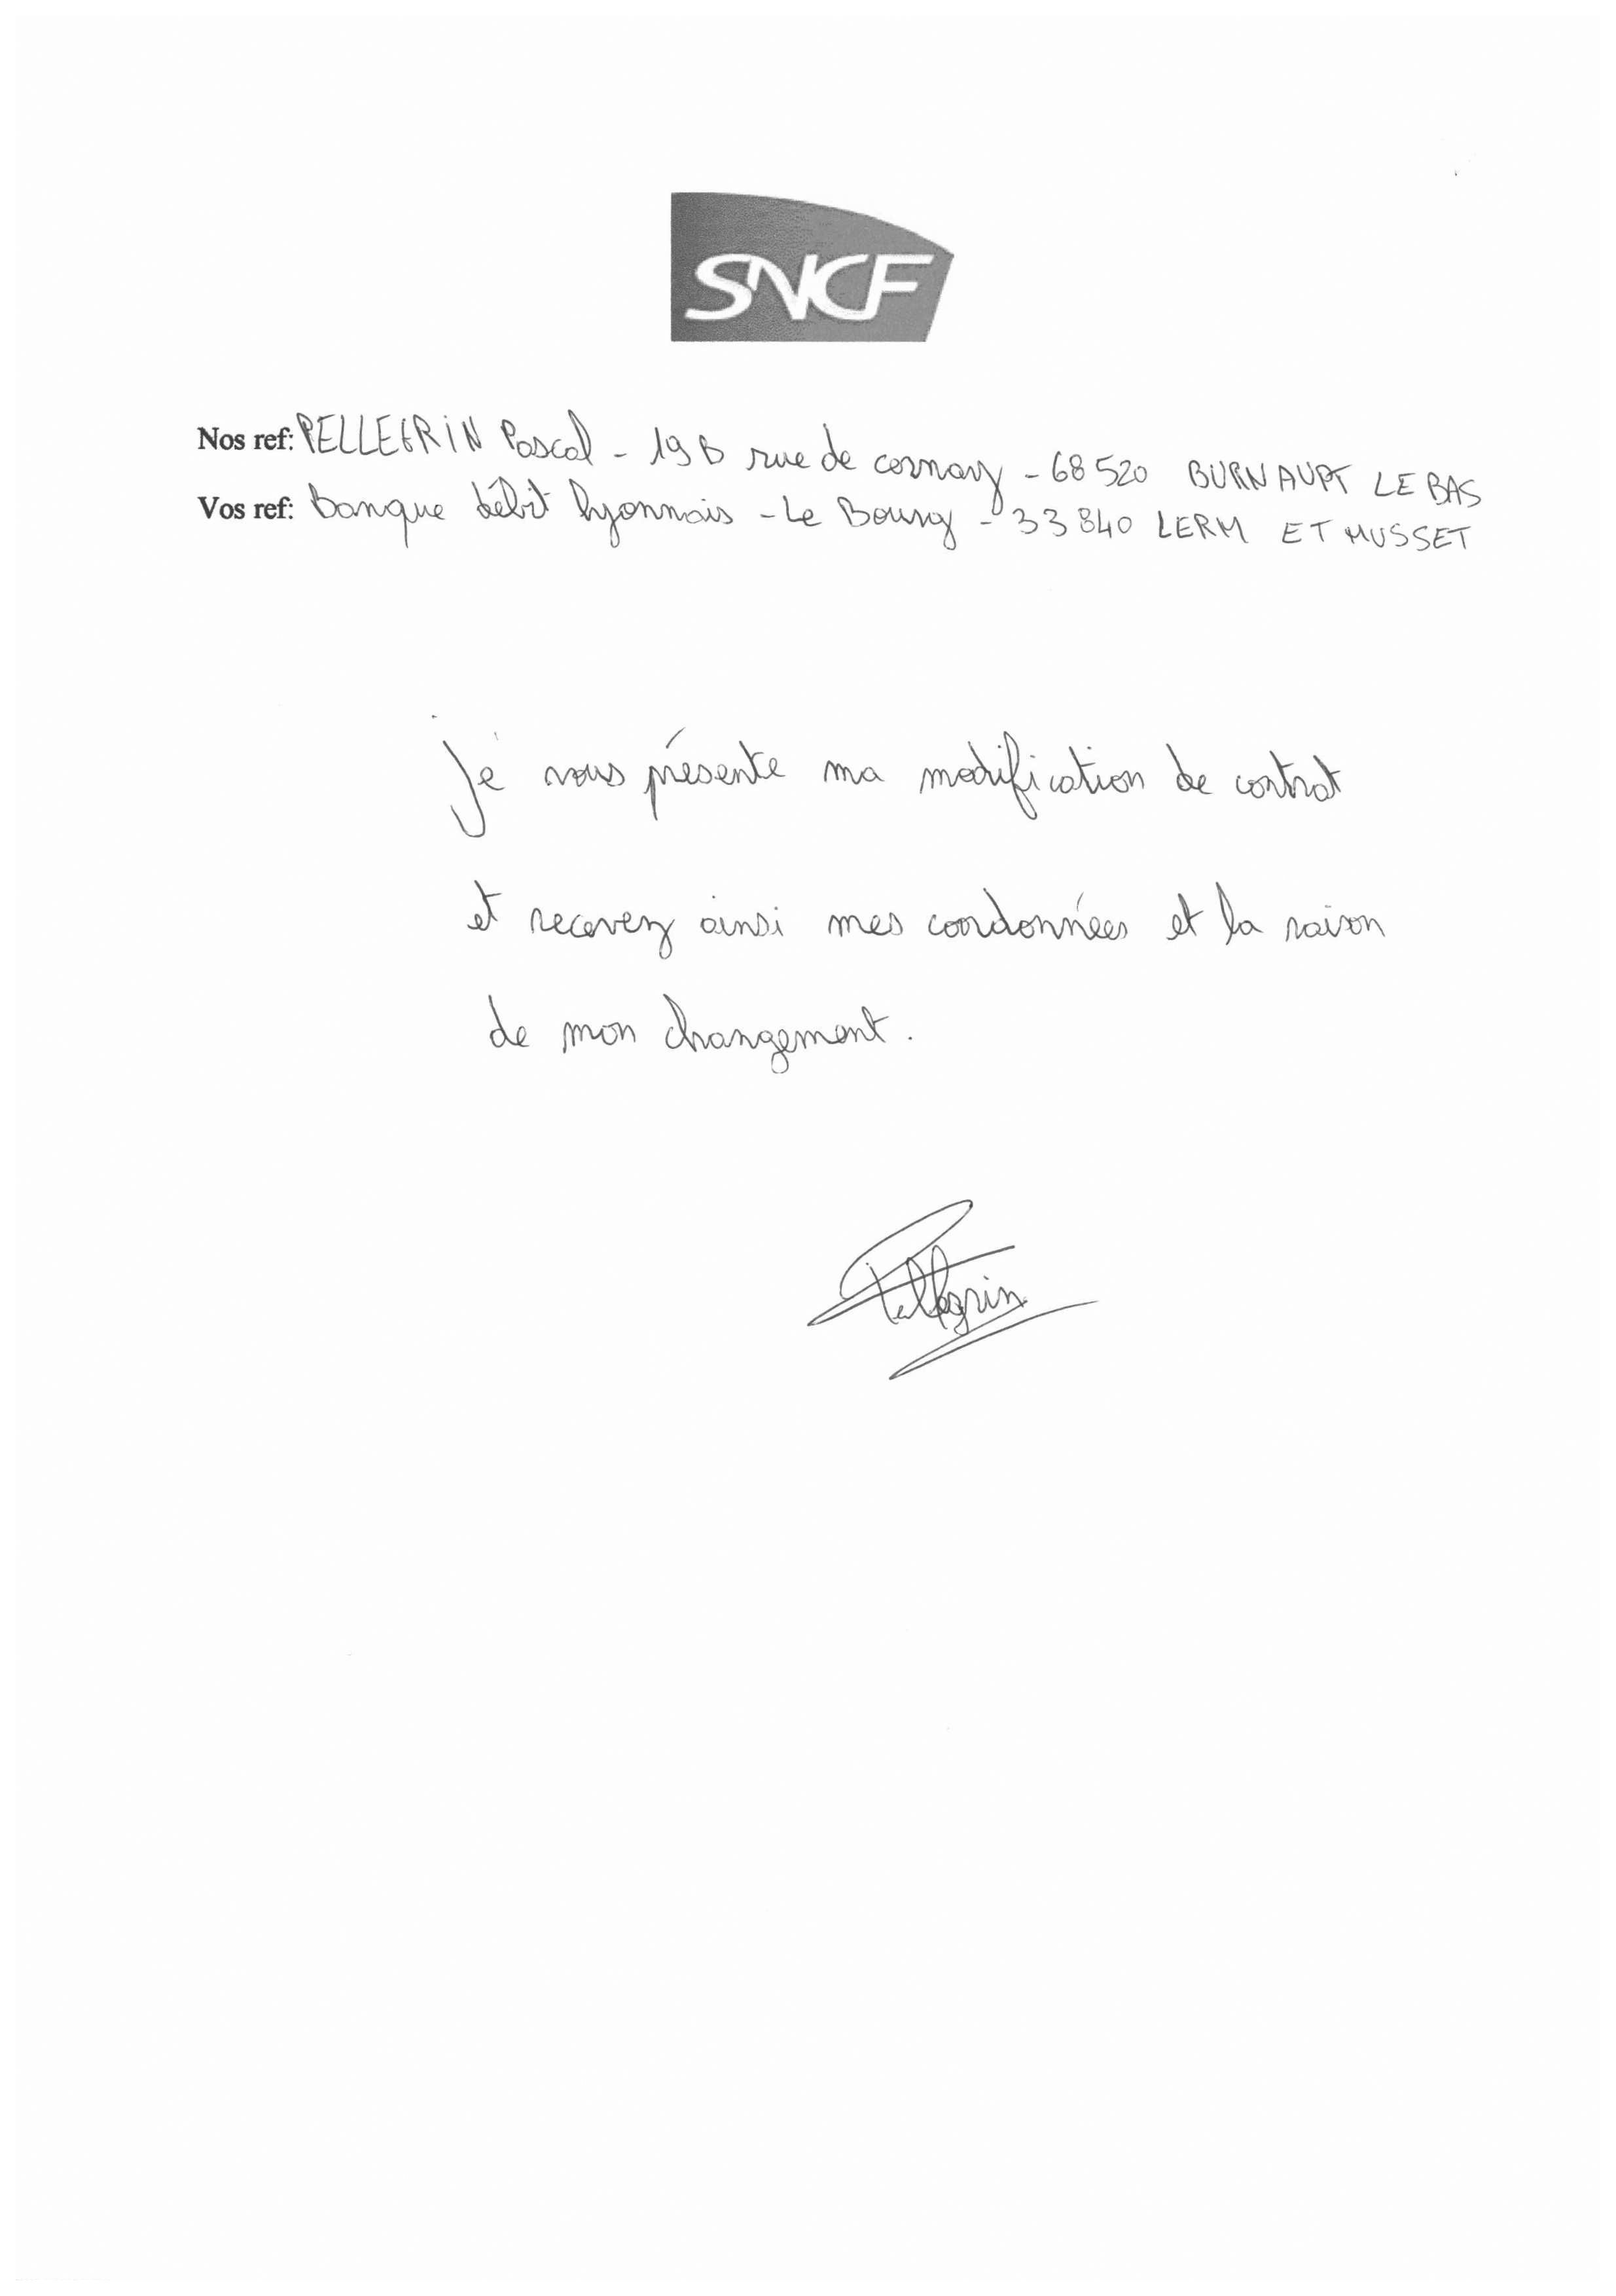 SNCF
Nos ref: PELLEGRIN Pascal - 19 B rue de cernay - 68520 BURNAUPT LE BAS
Vos ref: Banque débit lyonnais - Le Bourg - 33840 LERM ET MUSSET
Je vous présente ma modification de contrat
et recevez ainsi mes coordonnées et la raison
de mon changement.
Pellegrin